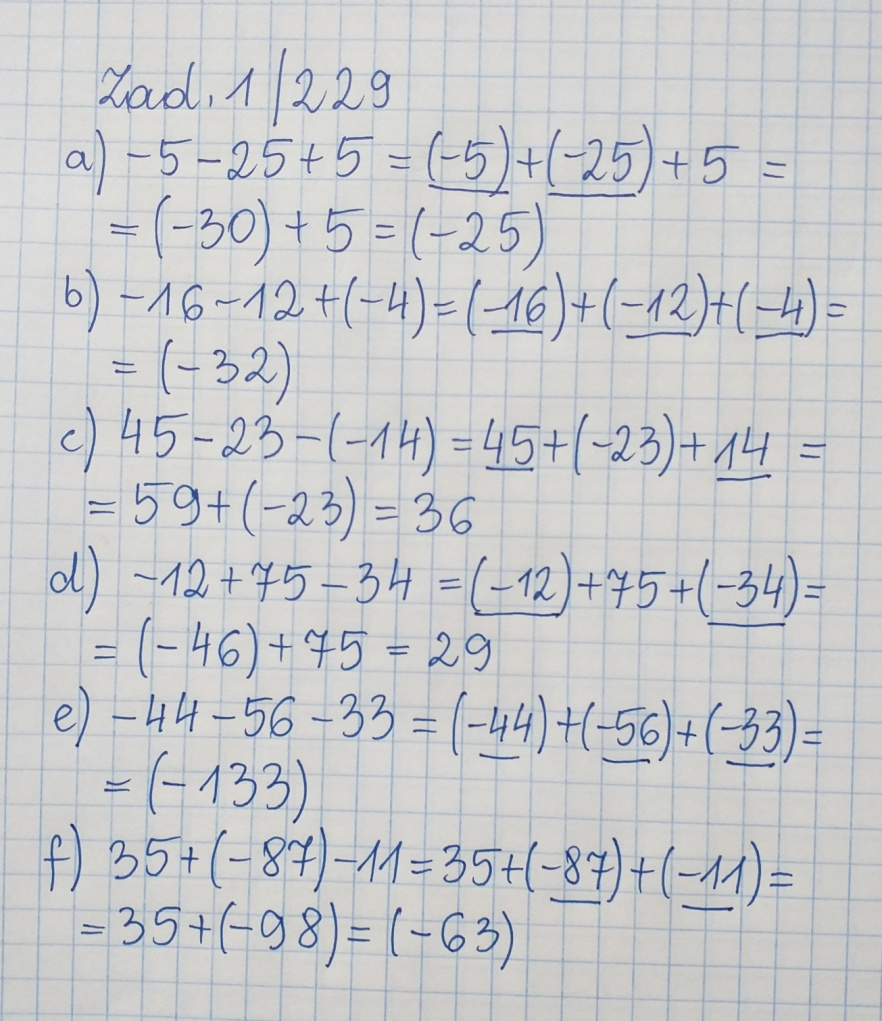 Zad. 1/229
a) -5-25+5 = (-5)+(-25)+5 =
= (-30)+5 = (-25)
b) -16-12+(-4) = (-16)+(-12)+(-4) =
= (-32)
c) 45-23-(-14) = 45+(-23)+14 =
= 59+(-23) = 36
d) -12+75-34 = (-12)+75+(-34) =
= (-46)+75 = 29
e) -44-56-33 = (-44)+(-56)+(-33) =
= (-133)
f) 35+(-87)-11 = 35+(-87)+(-11) =
= 35+(-98) = (-63)